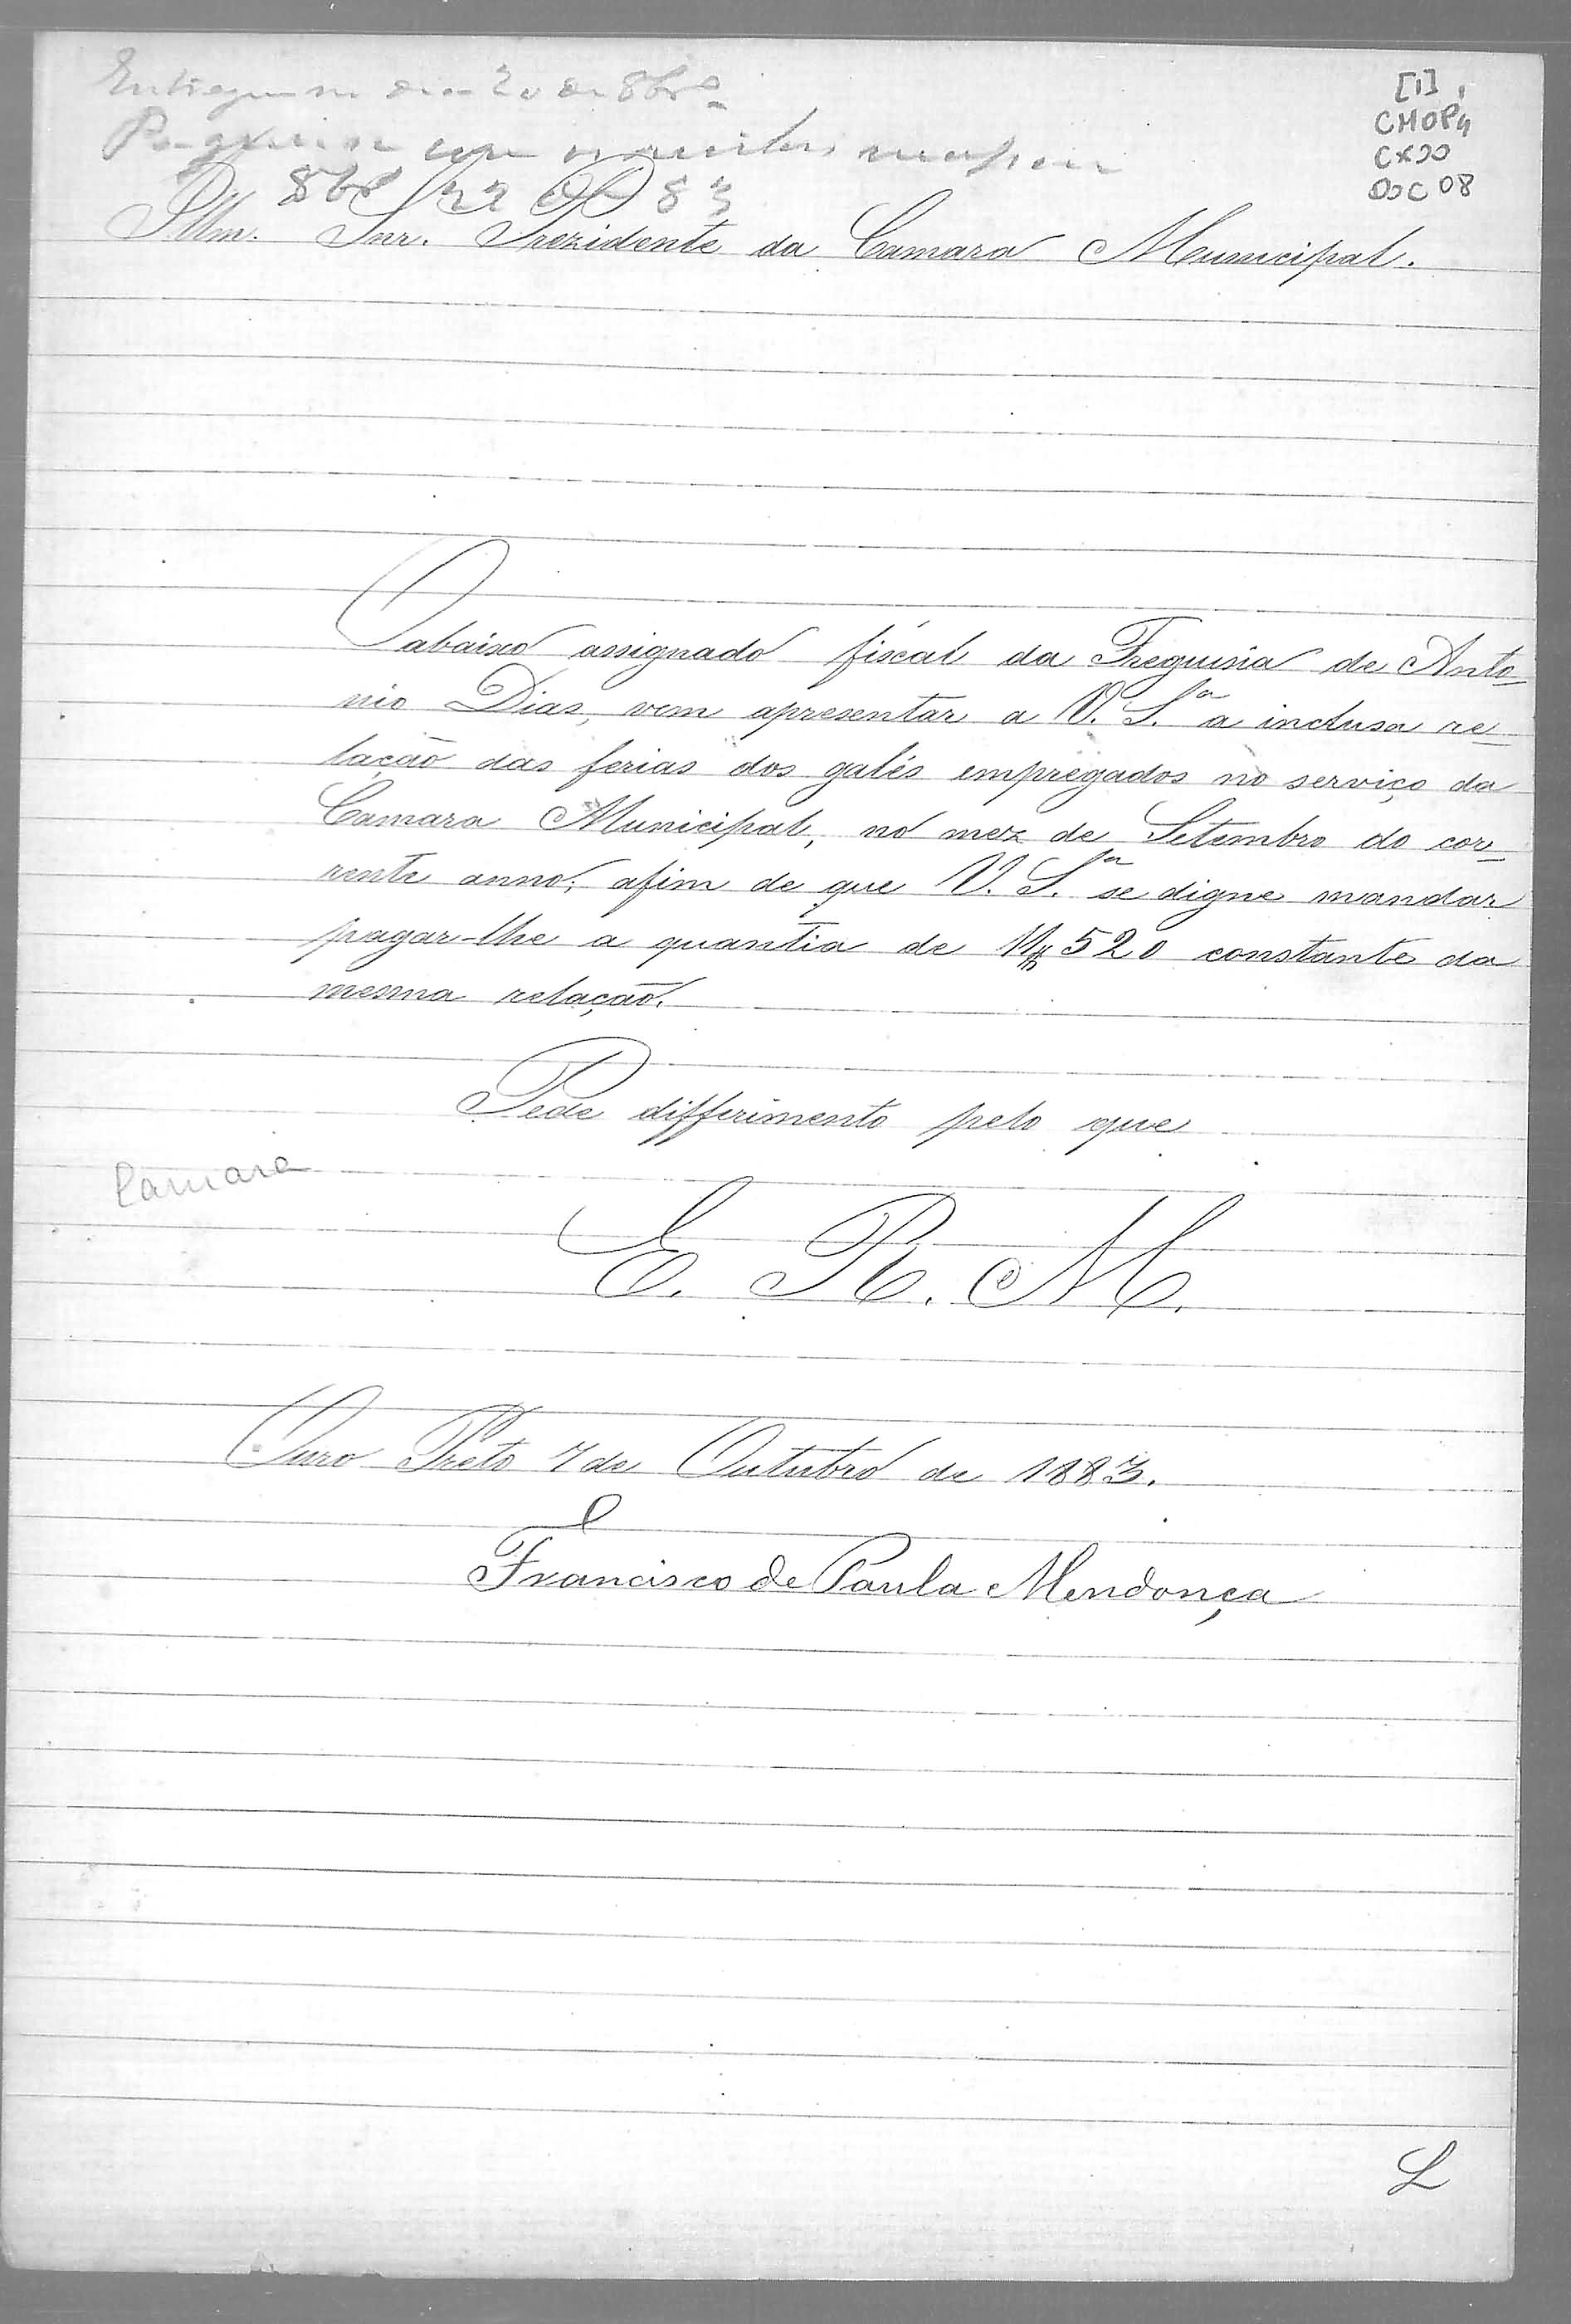 [1]
CMOP4
CX20
DOC 08
8br.º
8br.º 22 OP 83
Illm. Snr. Prezidente da Camara Municipal.
O abaixo assignado fiscal da Freguisia de Anto=
nio Dias, vem apresentar a V. S.ª a inclusa re=
lação das ferias dos galés empregados no serviço da
Camara Municipal, no mez de Setembro do cor=
rente anno, afim de que V. S.ª se digne mandar
pagar-lhe a quantia de 11$520 constante da
mesma relação.
Pede differimento pelo que
Camara
E. R. M.
Ouro Preto 7 de Outubro de 1883.
Francisco de Paula Mendonça